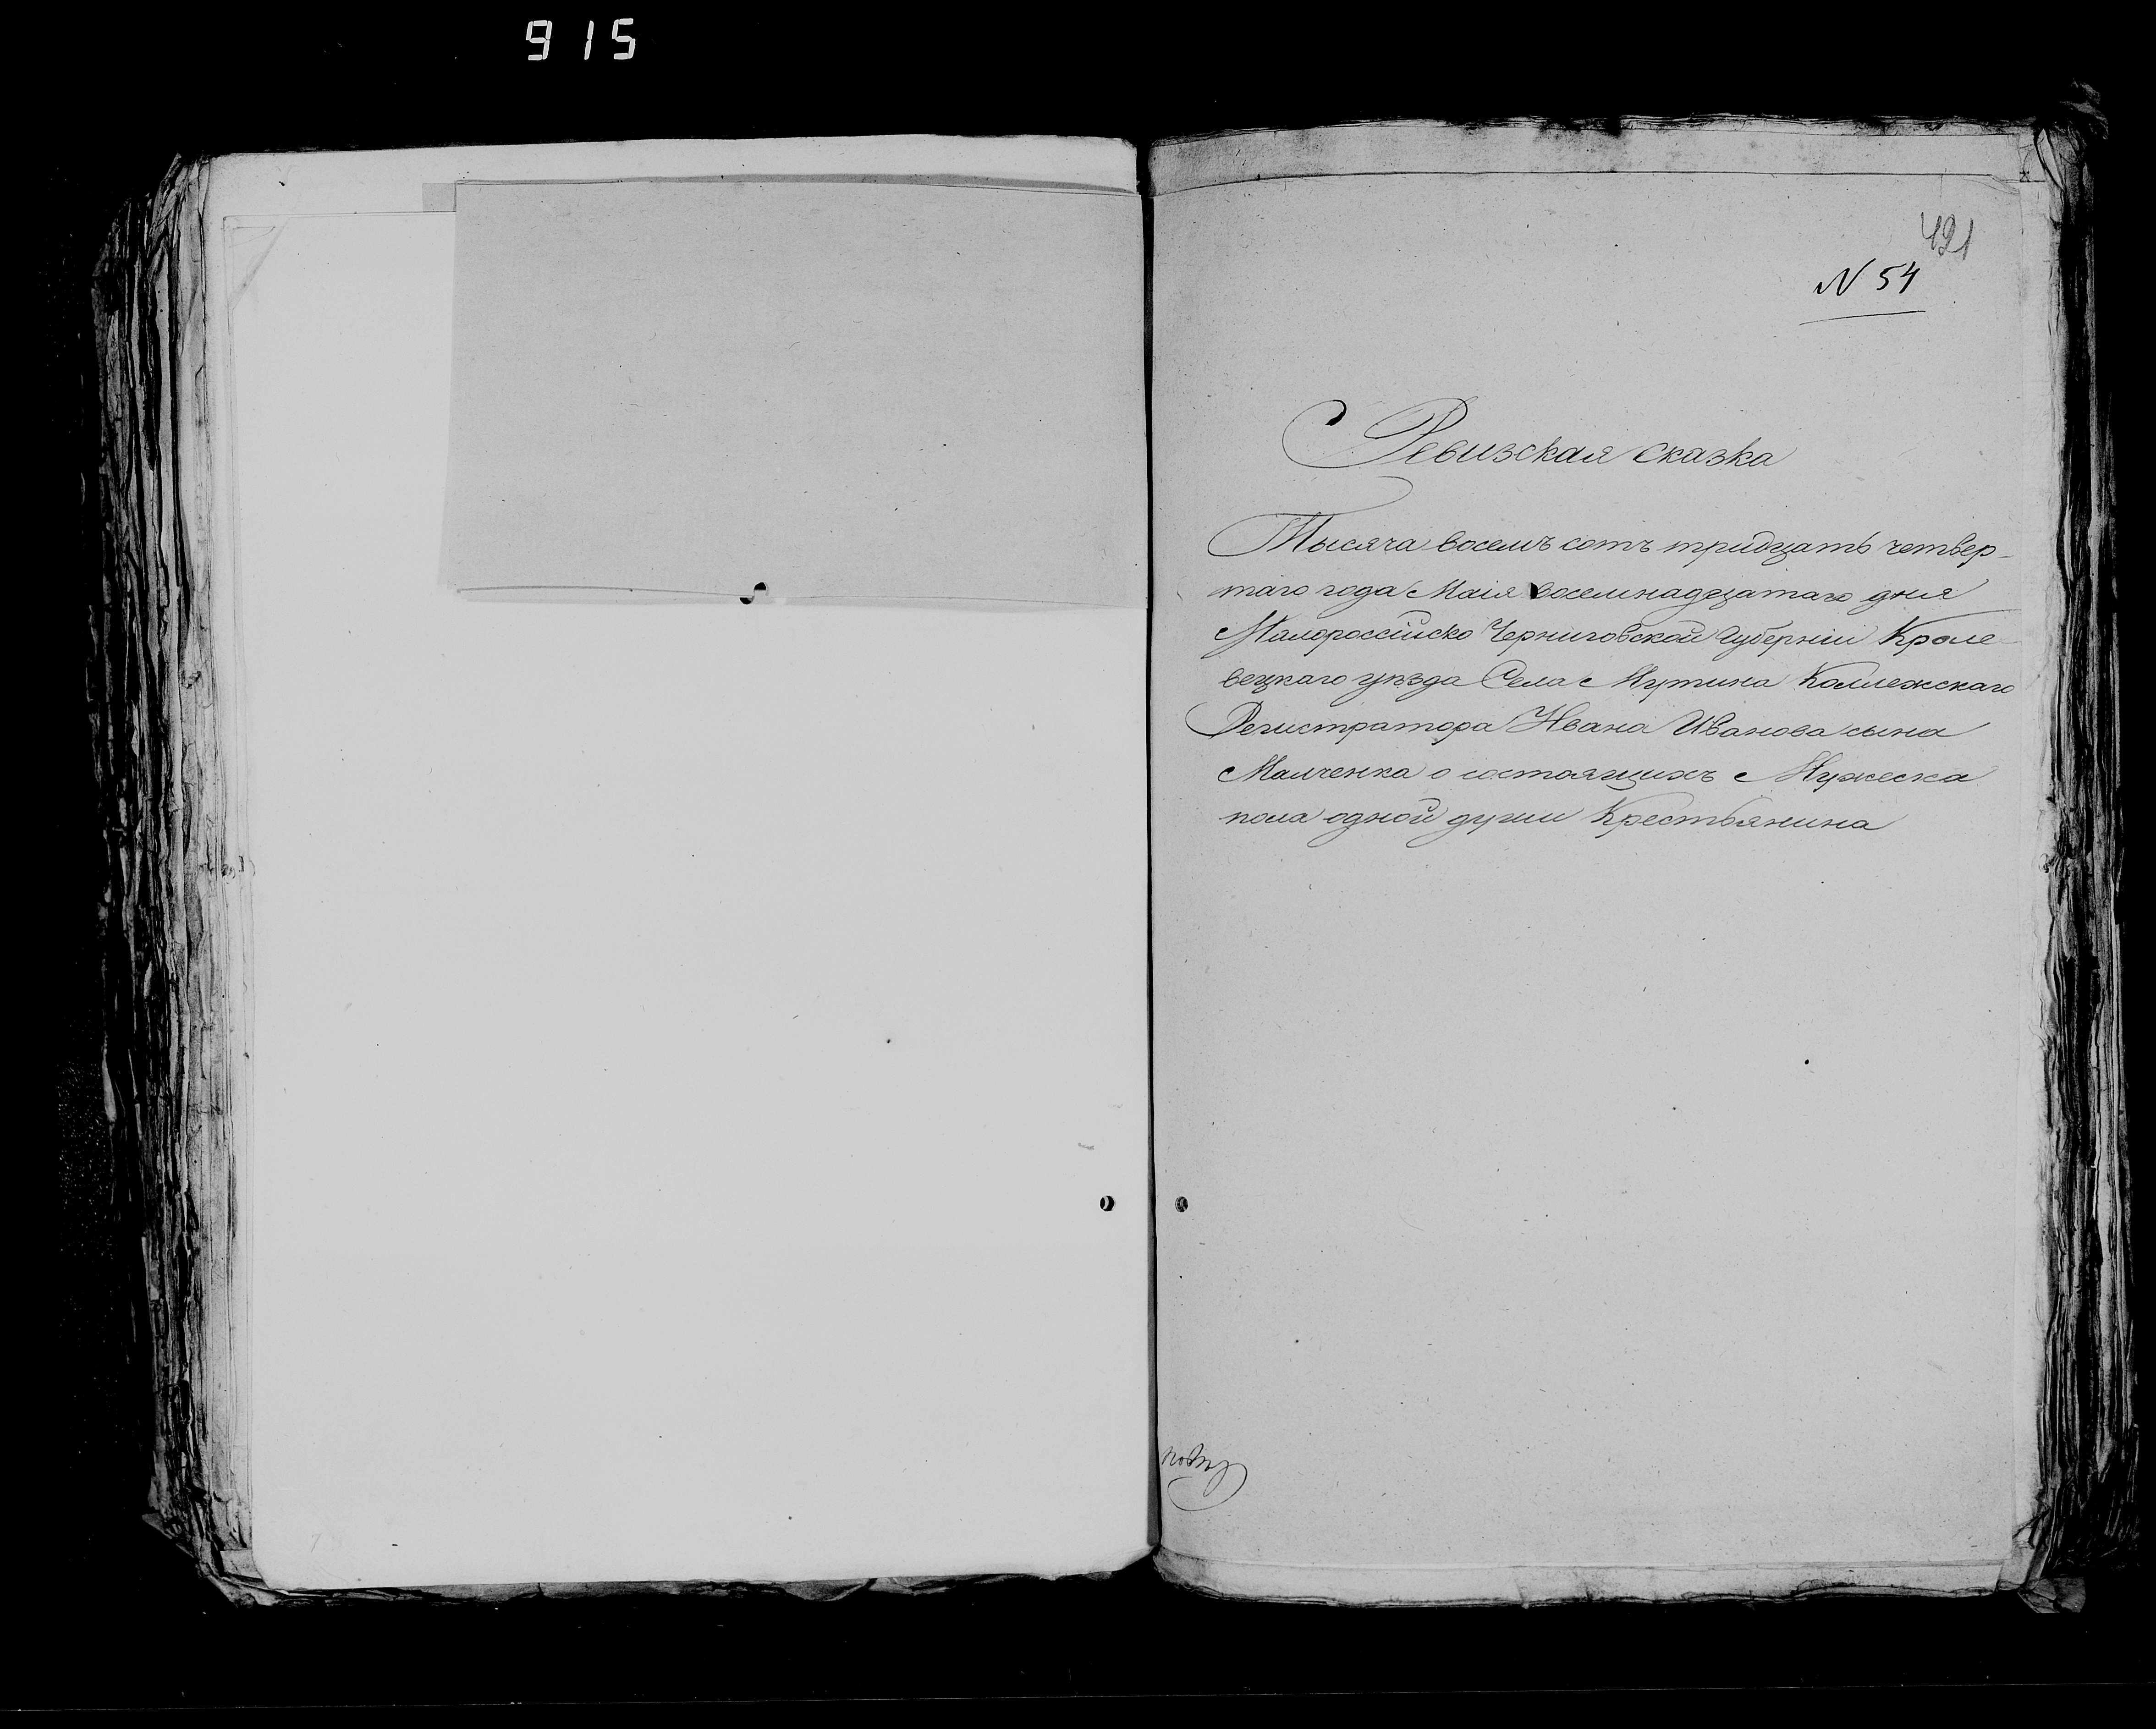 915
421
N 54
Ревизская сказка
Тысяча восемъ сотъ тридцать четвер-
таго года Маія восемнадцатаго дня
Малороссійско Черниговской Губерніи Кроле-
вецкаго уѣзда Села Мутина Коллежскаго
Регистратора Ивана Иванова сына
Малченка о состоящихъ Мужеска
пола одной души Крестьянина